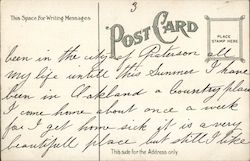 3
This Space For Writing Messages
POST CARD
PLACE
STAMP HERE
been in the city of Paterson all
my life untill this Summer I have
been in Oakland a Country place
I come home about once a week
for I get home sick it is a very
beautifull place but still I like
This side for the Address only